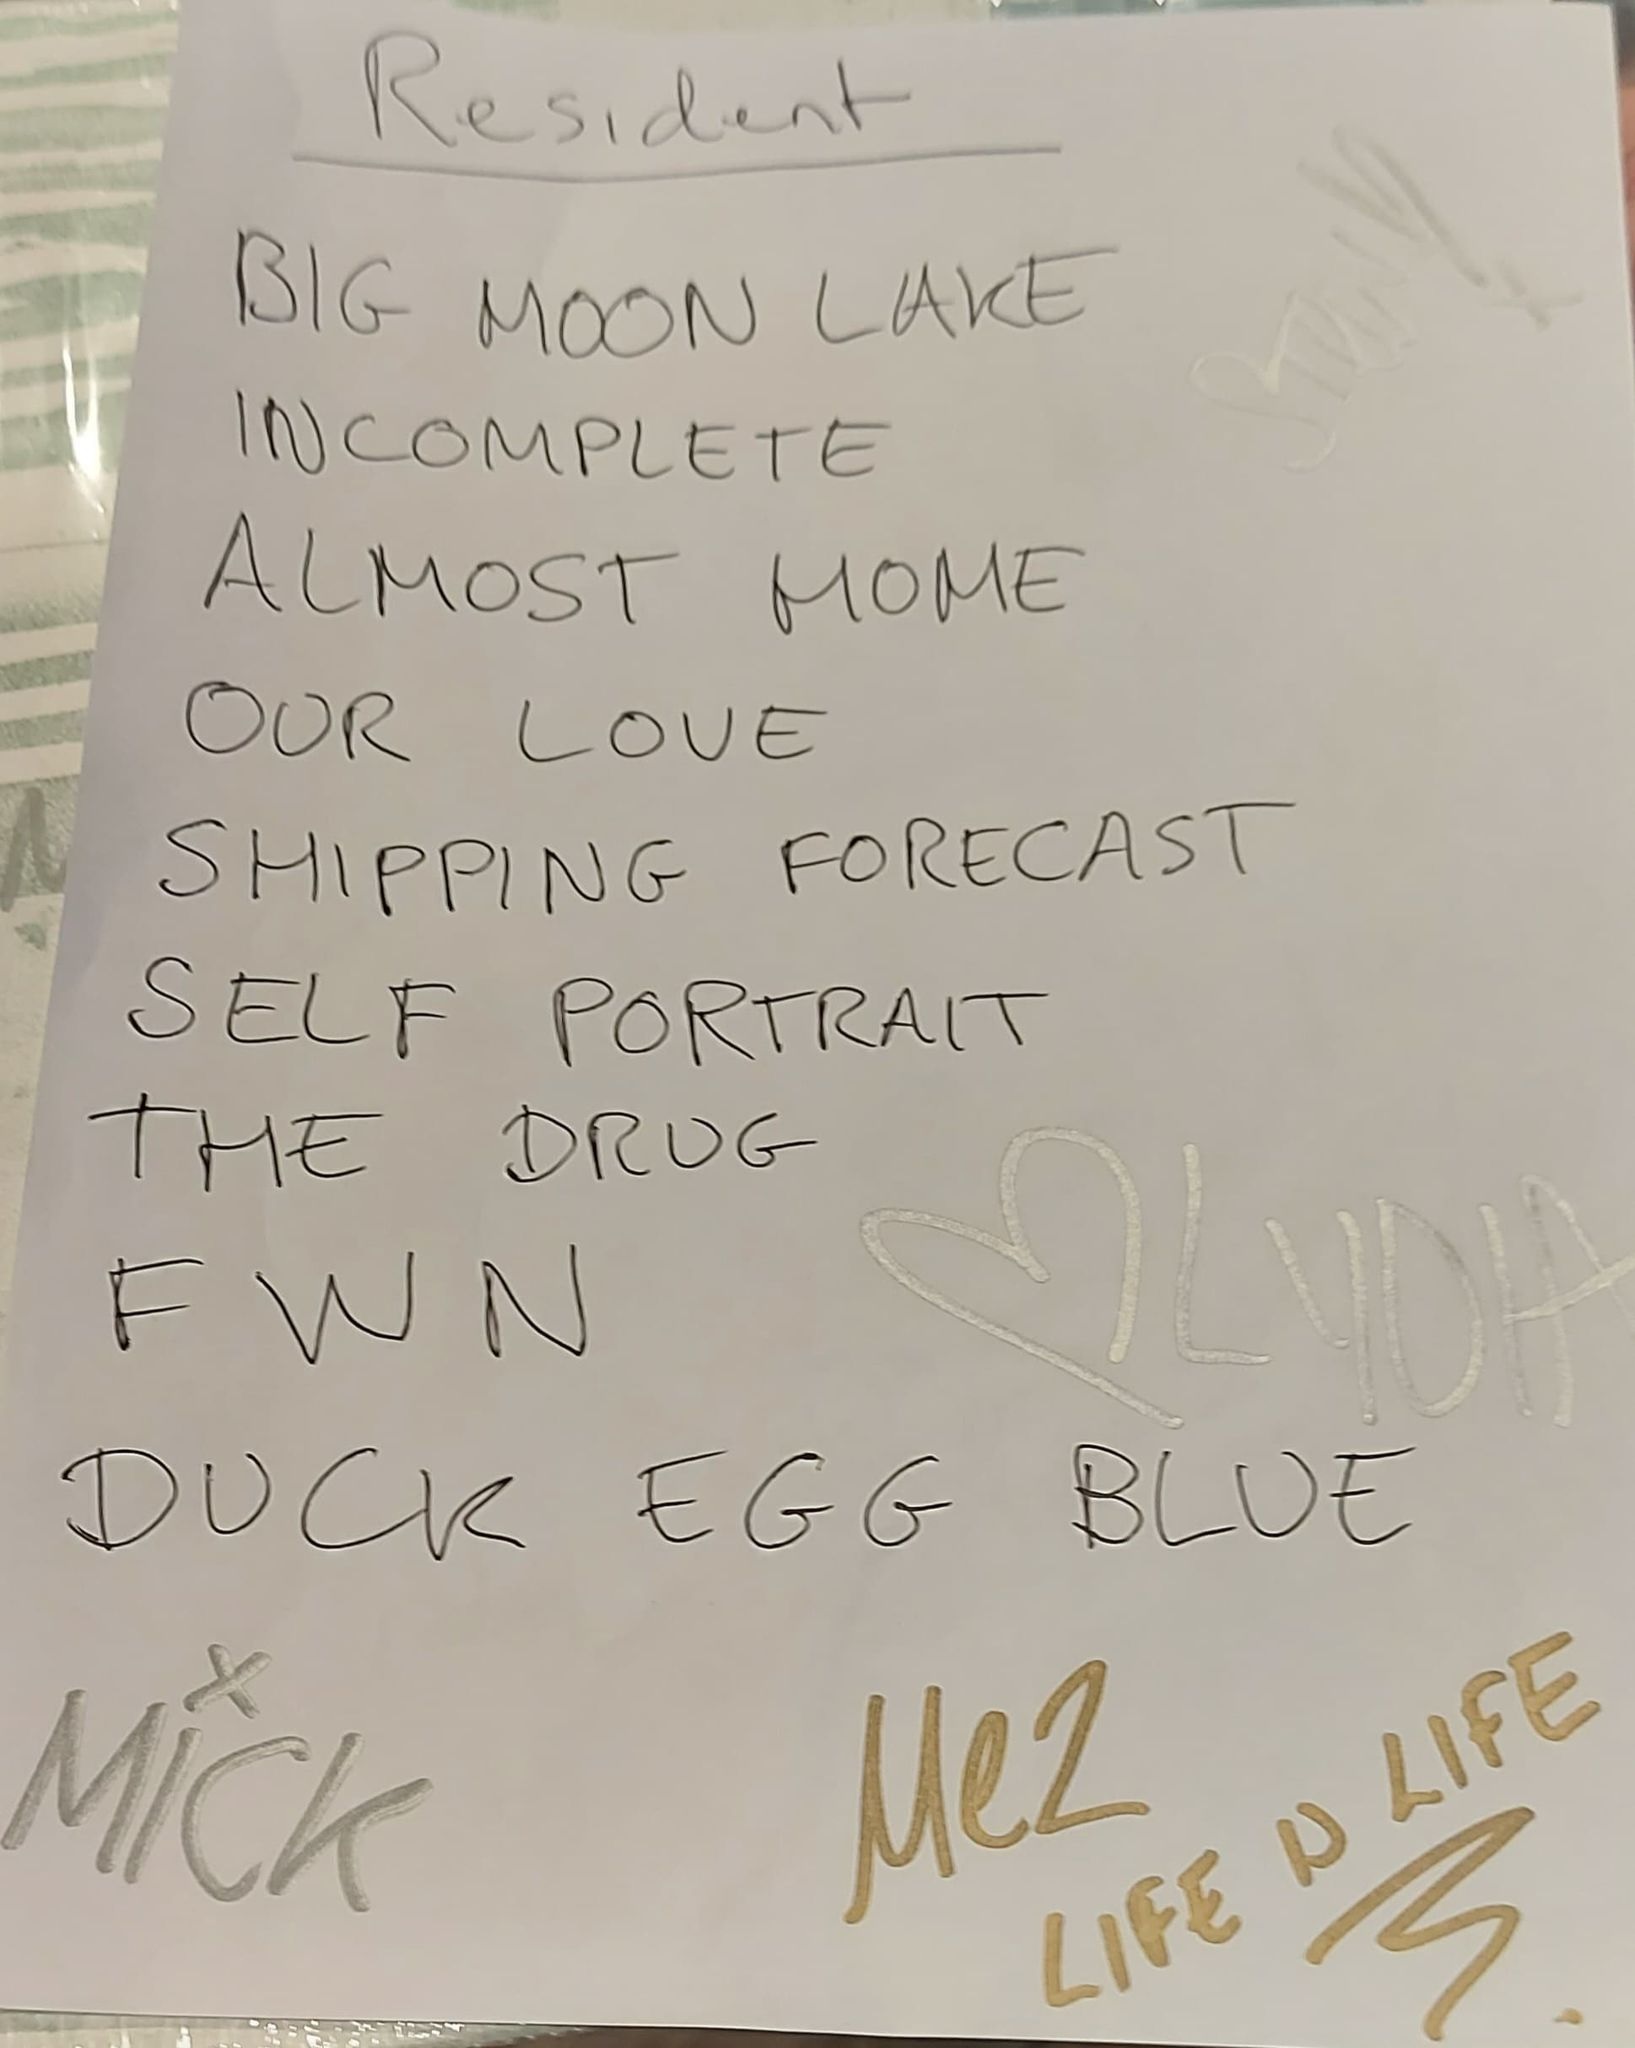 Resident
BIG MOON LAKE
INCOMPLETE
ALMOST HOME
OUR LOVE
SHIPPING FORECAST
SELF PORTRAIT
THE DRUG
FWN
LYDIA
DUCK EGG BLUE
MICK
x
Mez
LIFE N LIFE